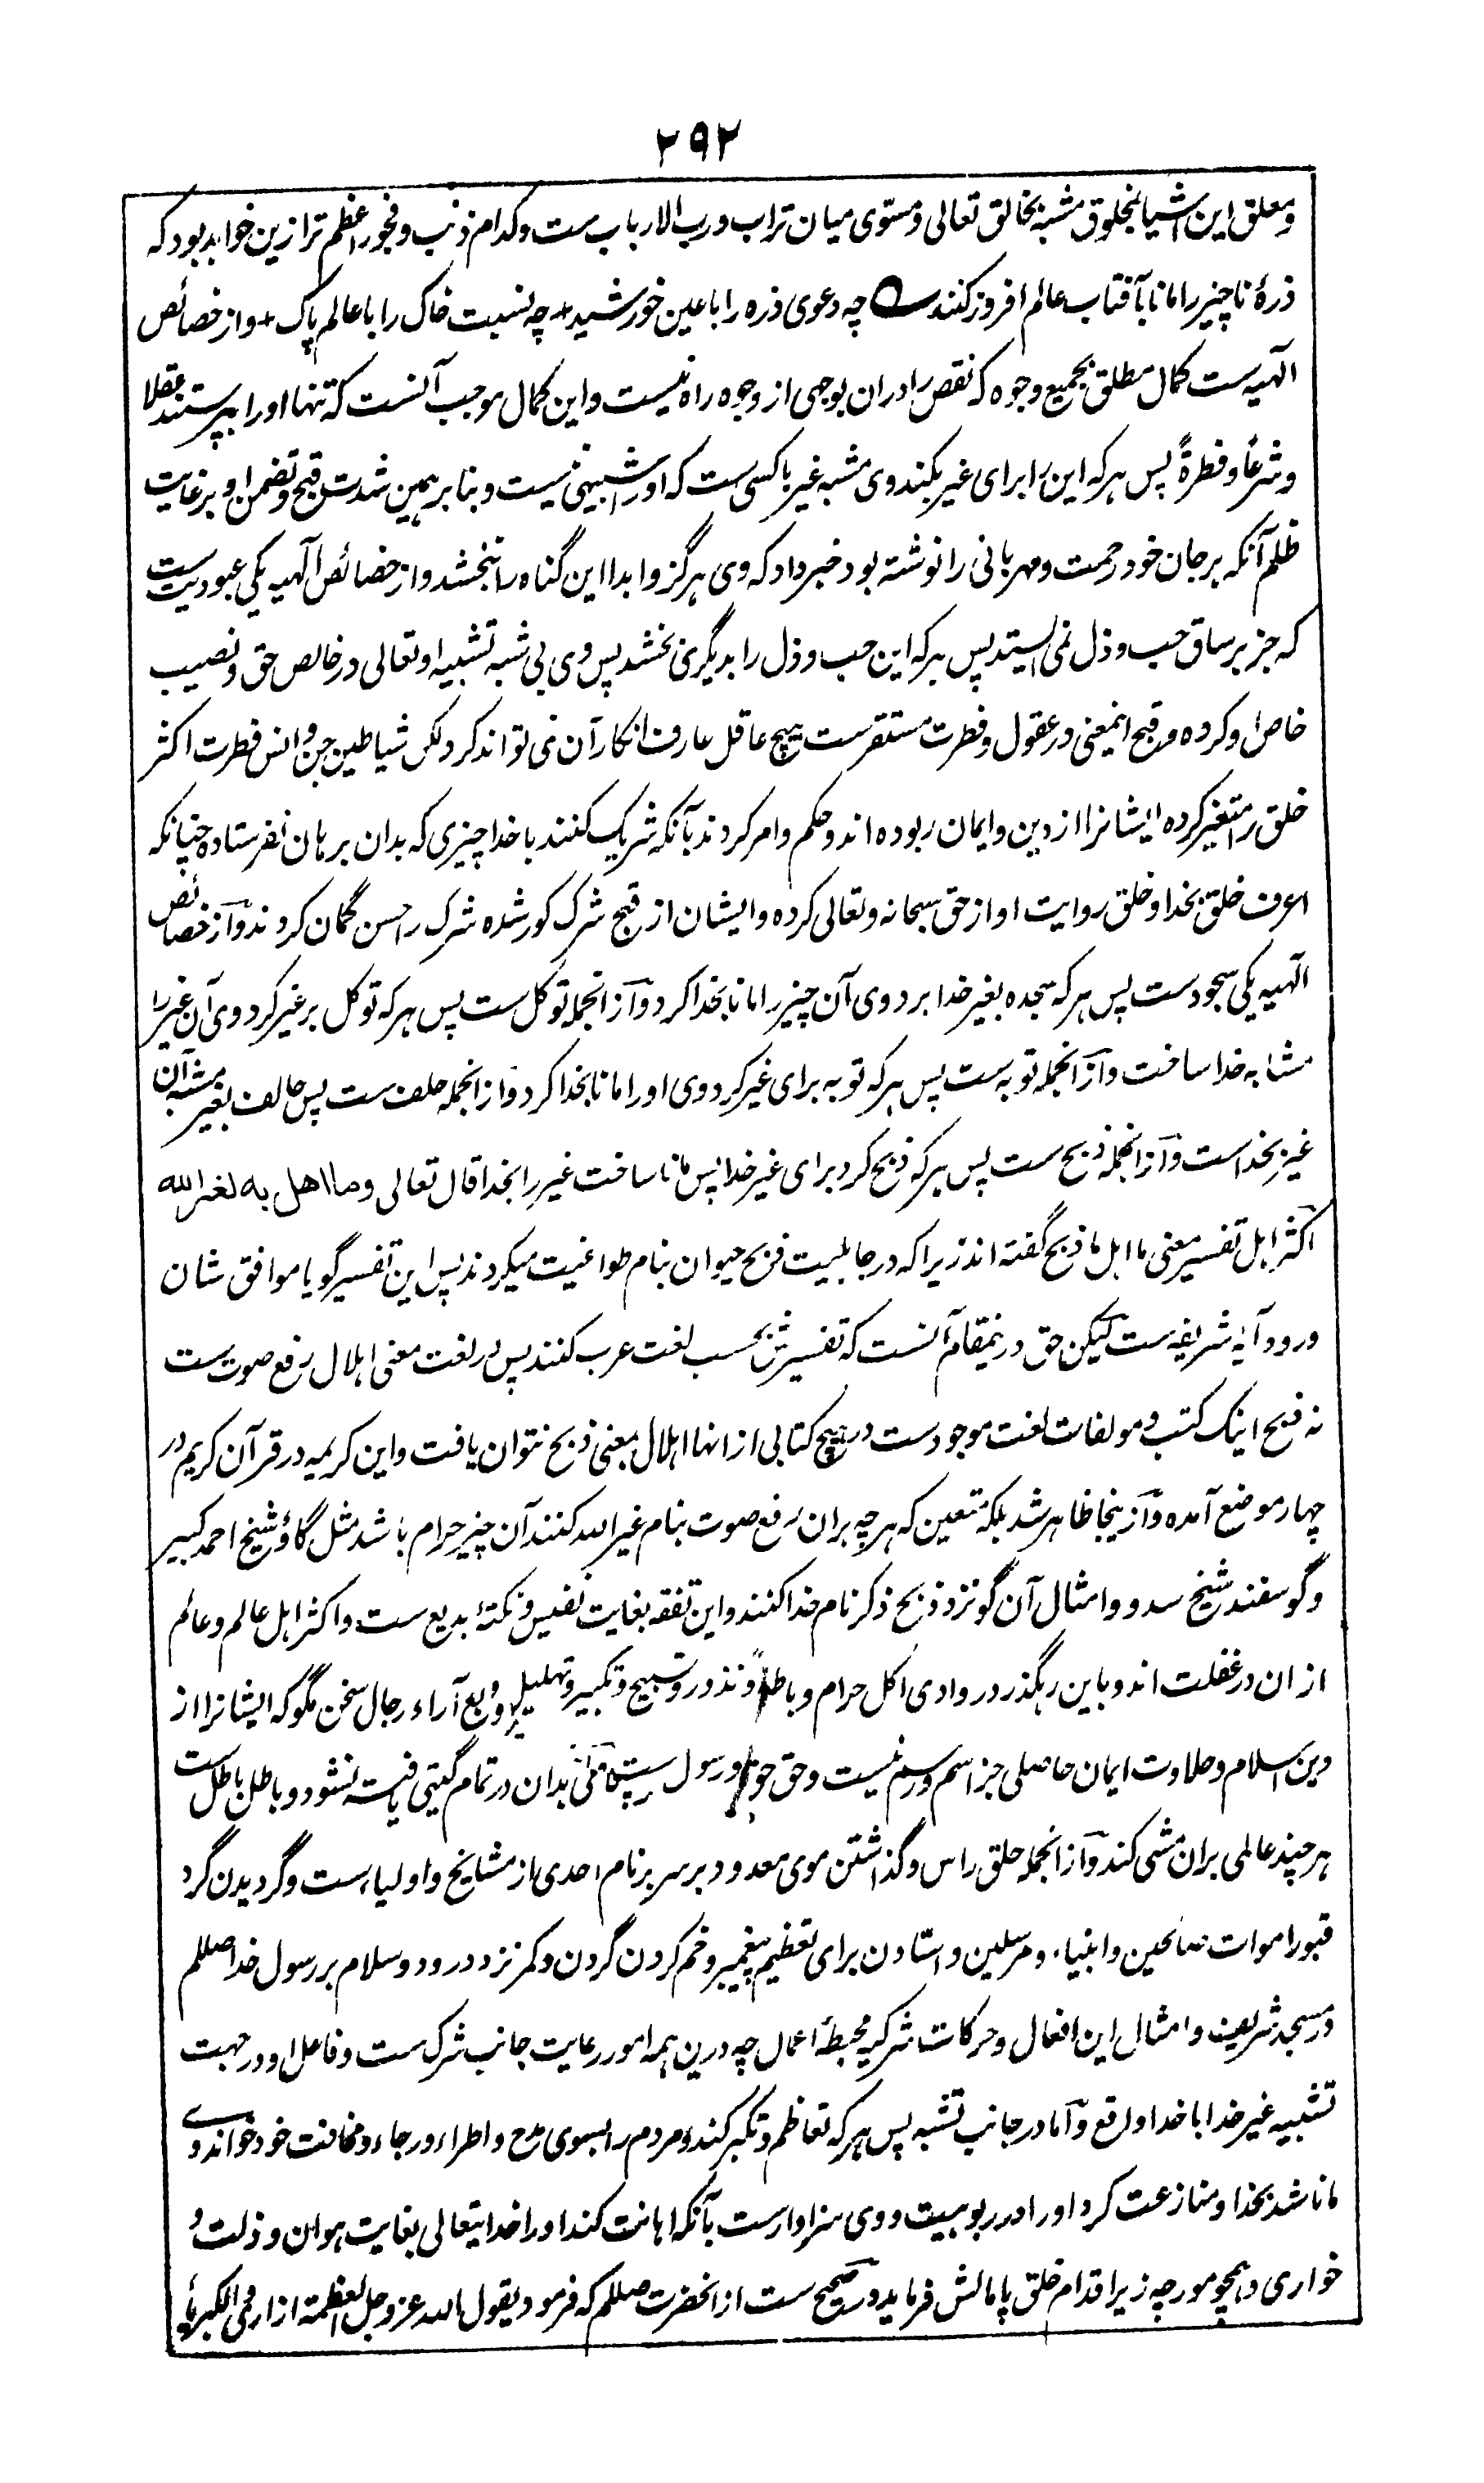 ۲۹۲
و معلق این اشیا بمخلوق مشبه بخالق تعالی و مستوی میان تراب و رب الارباب ست و کدام ذنب و فجور اعظم تر ازین خواهد بود که
ذرهٔ ناچیز را مانا بآفتاب عالم افروز کنند ے چه دعوی ذره را با عین خورشید + چه نسبت خاک را با عالم پاک + و از خصائص
الٓهیه ست کمال مطلق بجمیع وجوه که نقص را دران بوجهی از وجوه راه نیست و این کمال موجب آنست که تنها او را بپرستند عقلا
و شرعاً و فطرةً پس هر که این را برای غیر بکند وی مشبه غیر با کسی ست که او را شبیهی نیست و بنا بر همین شدت قبح و تضمن او بر غایت
ظلم آنکه بر جان خود رحمت و مهربانی را نوشته بود خبر داد که وی هرگز و ابدا این گناه را نبخشد و از خصائص الٓهیه یکی عبودیت ست
که جز بر ساق حب و ذل نمی ایستد پس هر که این حب و ذل را بدیگری بخشد پس وی بی شبه تشبیه او تعالی در خالص حق و نصیب
خاص او کرده و قبح اینمعنی در عقول و فطرت مستقر ست هیچ عاقل عارف انکار آن نمی تواند کرد لکن شیاطین جن و انس فطرت اکثر
خلق را متغیر کرده ایشانرا از دین و ایمان ربوده اند و حکم و امر کردند بآنکه شریک کنند با خدا چیزی که بدان برهان نفرستاده چنانکه
اعرف خلق بخدا و خلق روایت او از حق سبحانه و تعالی کرده و ایشان از قبح شرک کور شده شرک را حسن گمان کردند و آز خصائص
الٓهیه یکی سجود ست پس هر که سجده بغیر خدا برد وی آن چیز را مانا بخدا کرد و آز انجمله توکل ست پس هر که توکل بر غیر کرد وی آن غیر را
مشابه خدا ساخت و آز انجمله توبه ست پس هر که توبه برای غیر کرد وی او را مانا بخدا کرد و از انجمله حلف ست پس حالف بغیر مشبه آن
غیر بخداست و آز انجمله ذبح ست پس هر که ذبح کرد برای غیر خدا پس مانا ساخت غیر را بخدا قال تعالی وما اهل به لغیر الله
اکثر اهل تفسیر معنی ما اهل ما ذبح گفته اند زیرا که در جاهلیت ذبح حیوان بنام طواغیت میکردند پس این تفسیر گویا موافق شان
ورود آیهٔ شریفه ست لیکن حق درینمقام آنست که تفسیرش بحسب لغت عرب کنند پس در لغت معنی اهلال رفع صوت ست
نه ذبح اینک کتب و مولفات لغت موجود ست در هیچ کتابی از انها اهلال بمعنی ذبح نتوان یافت و این کریمه در قرآن کریم در
چهار موضع آمده و آز ینجا ظاهر شد بلکه متعین که هر چه بران رفع صوت بنام غیر الله کنند آن چیز حرام باشد مثل گاؤ شیخ احمد کبیر
و گوسفند شیخ سدو و امثال آن گو نزد ذبح ذکر نام خدا کنند و این تفقه بغایت نفیس و نکتهٔ بدیع ست و اکثر اهل عالم و عالم
از ان در غفلت اند و باین رهگذر در وادی اکل حرام و باطل و نذور و تسبیح و تکبیر و تهلیل و بع آراء رجال سخن مگو که ایشانرا از
دین اسلام و حلاوت ایمان حاصلی جز اسم و رسم نیست و حق حق ورسول بدان در تمام گیتی یافته نشود و باطل باطل ست
هر چند عالمی بران مشی کند و آز انجمله حلق راس و گذاشتن موی معدود بر سر بنام احدی از مشایخ و اولیاء ست و گردیدن گرد
قبور اموات صالحین و انبیاء و مرسلین و استادن برای تعظیم پیغمبر و خم کردن گردن و کمر نزد درود و سلام بر رسول خدا صللم
در مسجد شریف و امثال این افعال و حرکات شرکیه محبطهٔ اعمال چه درین همه امور رعایت جانب شرک ست و فاعل او در جهت
تشبیه غیر خدا با خدا واقع و آما در جانب تشبه پس هر که تعاظم و تکبر کند و مردم را بسوی مدح و اطراء و رجاء و مخافت خود خواند وے
مانا شد بخدا و منازعت کرد او را در ربوبیت و وی سزاوار ست بآنکه اهانت کند او را خدایتعالی بغایت هوان و ذلت و
خواری و همچو مورچه زیر اقدام خلق پامالش فرماید و در صحیح ست از انحضرت صللم که فرمود یقول الله عز و جل العظمة ازاری و الکبریاء